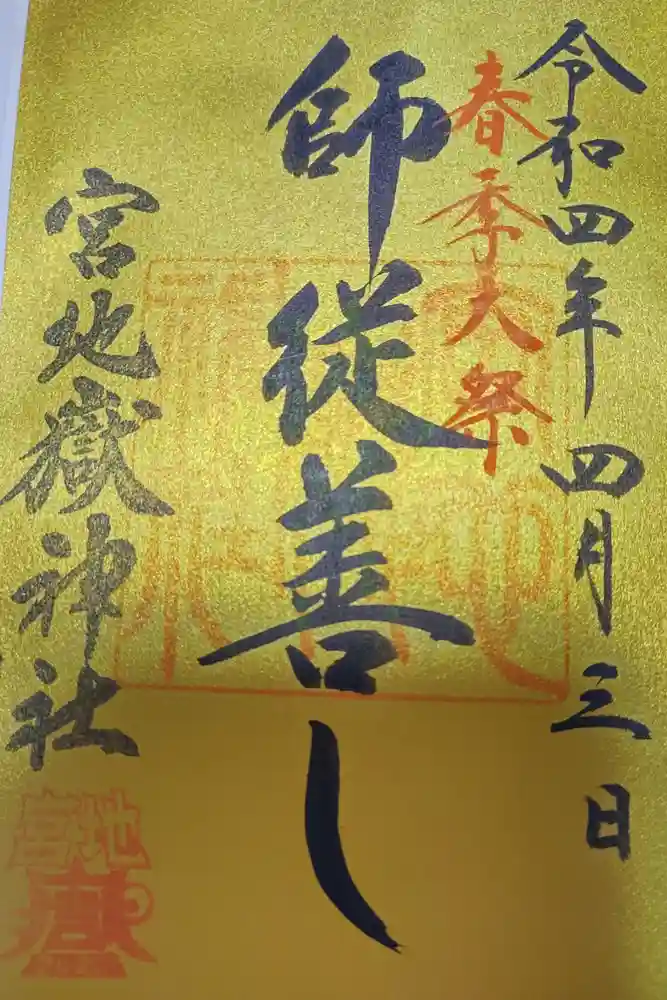 令和四年四月三日
春季大祭
師従善し
宮地嶽神社
宮地
嶽